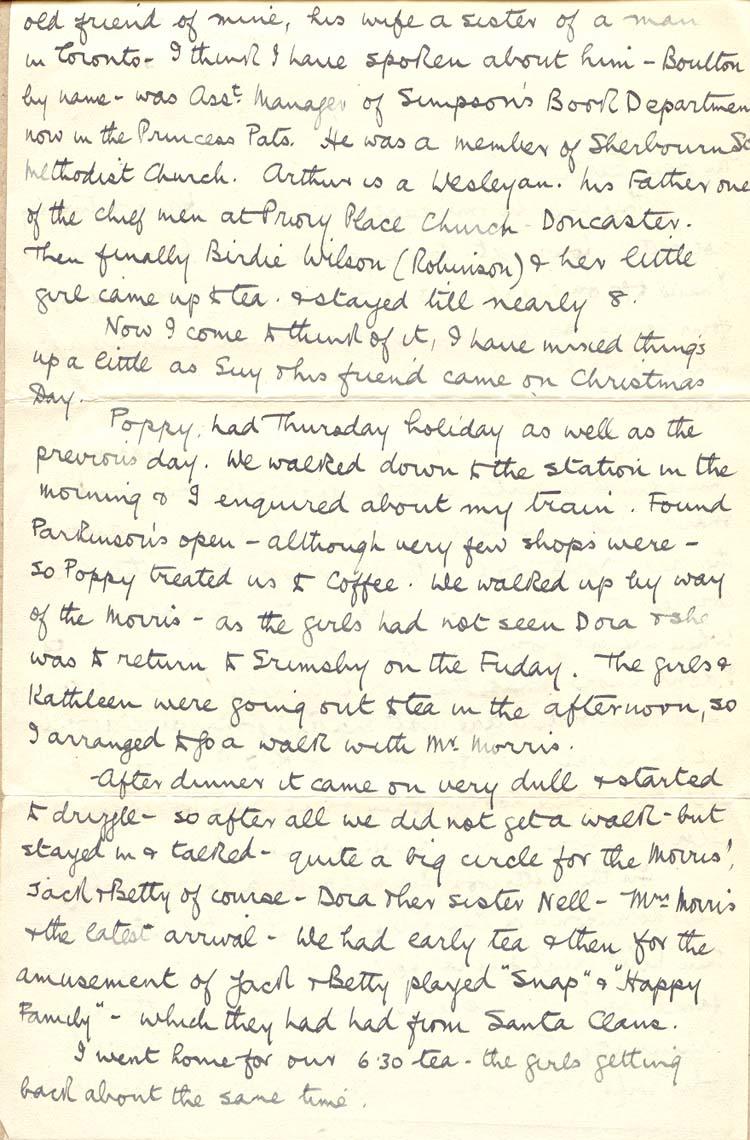 old friend of mine, his wife a sister of a man
in Toronto - I think I have spoken about him - Boulton
by name - was Asst. Manager of Simpson's Book Departmen
now in the Princess Pats. He was a member of Sherbourn St
Methodist Church. Arthur is a Wesleyan. his Father one
of the chief men at Priory Place Church Doncaster.
Then finally Birdie Wilson (Robinson) & her little
girl came up to tea. & stayed till nearly 8.
Now I come to think of it, I have mixed things
up a little as Guy & his friend came on Christmas
Day.
Poppy had Thursday holiday as well as the
previous day. We walked down to the station in the
morning & I enquired about my train. Found
Parkinson's open - although very few shops were -
so Poppy treated us to Coffee. We walked up by way
of the Morris - as the girls had not seen Dora & she
was to return to Grimsby on the Friday. The girls &
Kathleen were going out to tea in the afternoon, so
I arranged to go a walk with Mr. Morris.
After dinner it came on very dull & started
to drizzle - so after all we did not get a walk - but
stayed in & talked - quite a big circle for the Morris',
Jack & Betty of course - Dora & her sister Nell - Mrs Morris
& the latest arrival - We had early tea & then for the
amusement of Jack & Betty played "Snap" & "Happy
Family" - which they had had from Santa Claus.
I went home for our 6.30 tea - the girls getting
back about the same time.